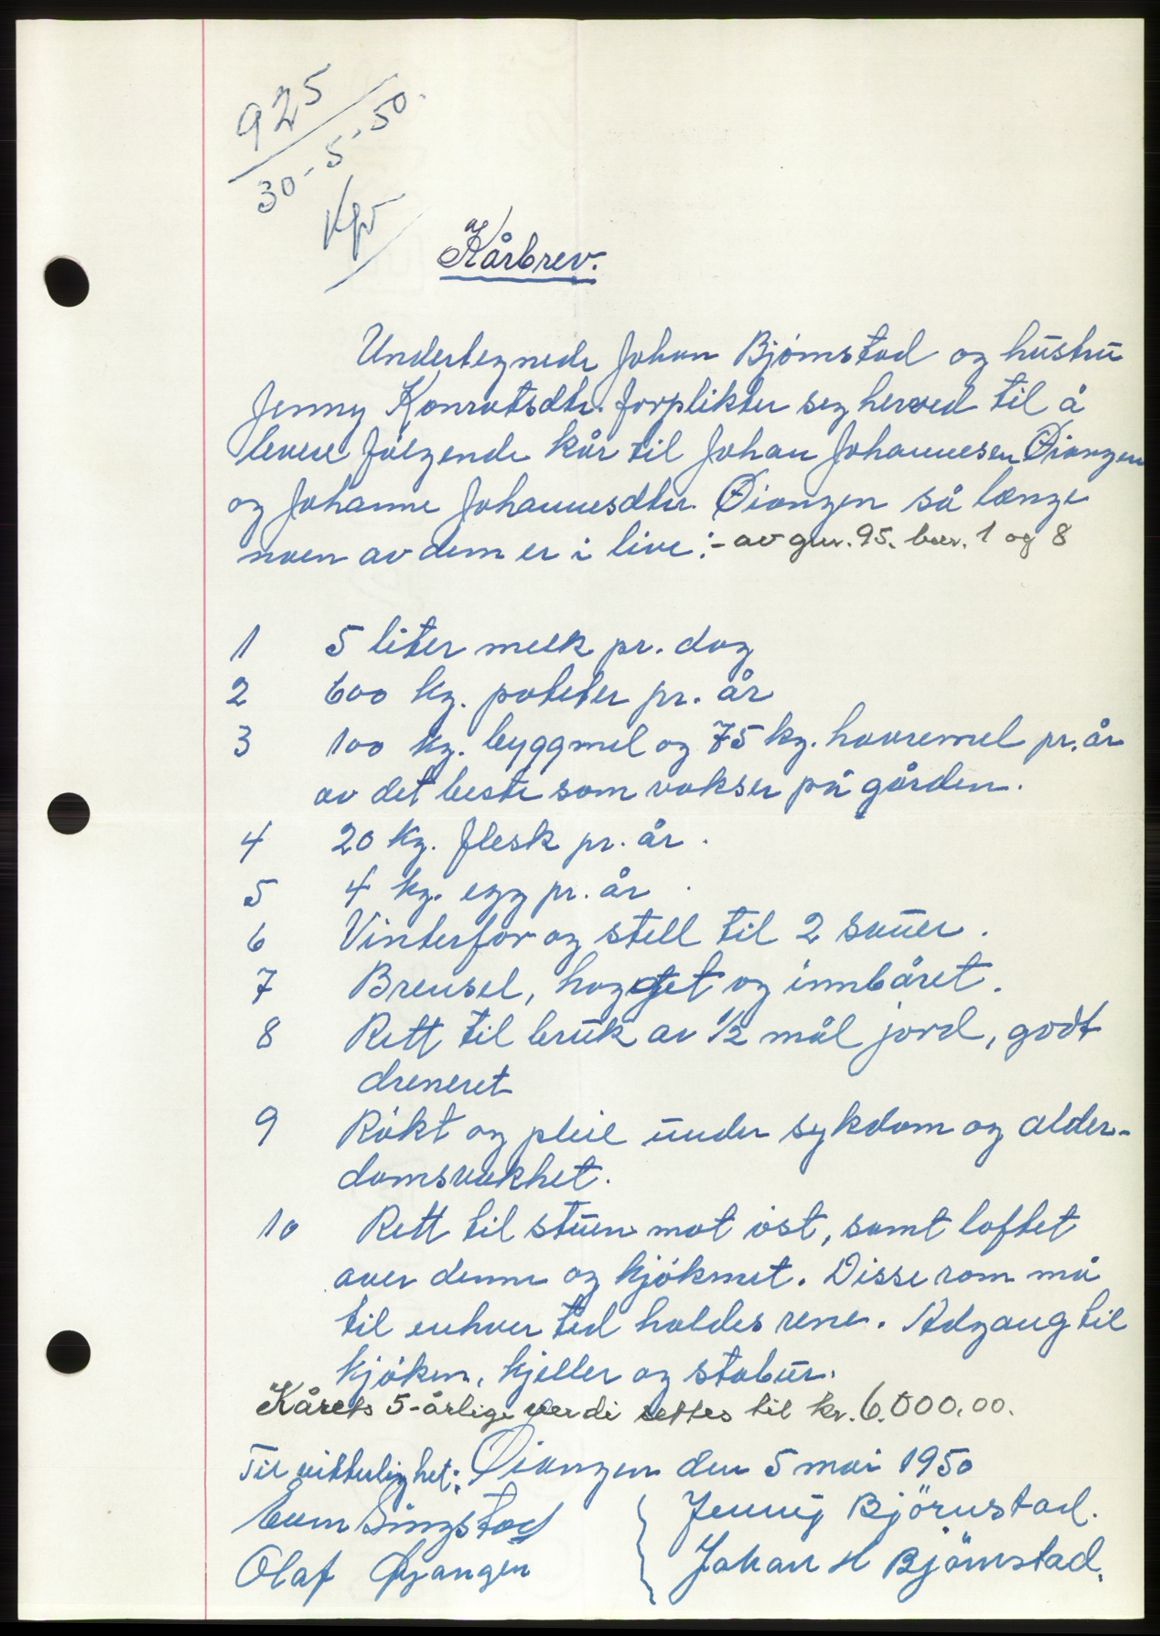 925
30-5-50.
Kårbrev.
Undertegnede Johan Bjørnstad og hustru
Jenny Konratsdtr. forplikter seg herved til å
levere følgende kår til Johan Johannesen Øiangen
og Johanne Johannesdtr. Øiangen så længe
noen av dem er i live: - av gnr. 95. bnr. 1 og 8
1 5 liter melk pr. dag
2 600 kg. poteter pr. år
3 100 kg. byggmel og 75 kg. havremel pr. år
av det beste som vokser på gården.
4 20 kg. flesk pr. år.
5 4 kg. egg pr. år.
6 Vinterfor og stell til 2 sauer.
7 Brensel, hogget og innbåret.
8 Rett til bruk av 1/2 mål jord, godt
dreneret
9 Røkt og pleie under sykdom og alder-
domsvakhet.
10 Rett til stuen mot øst, samt loftet
over denne og kjøkenet. Disse rom må
til enhver tid holdes rene. Adgang til
kjøken, kjeller og stabur.
Kårets 5-årlige verdi settes til kr. 6.000,00.
Til vitterlighet: Øiangen den 5 mai 1950
Singstad Jenny Bjørnstad.
Olaf Øyangen Johan H Bjørnstad.